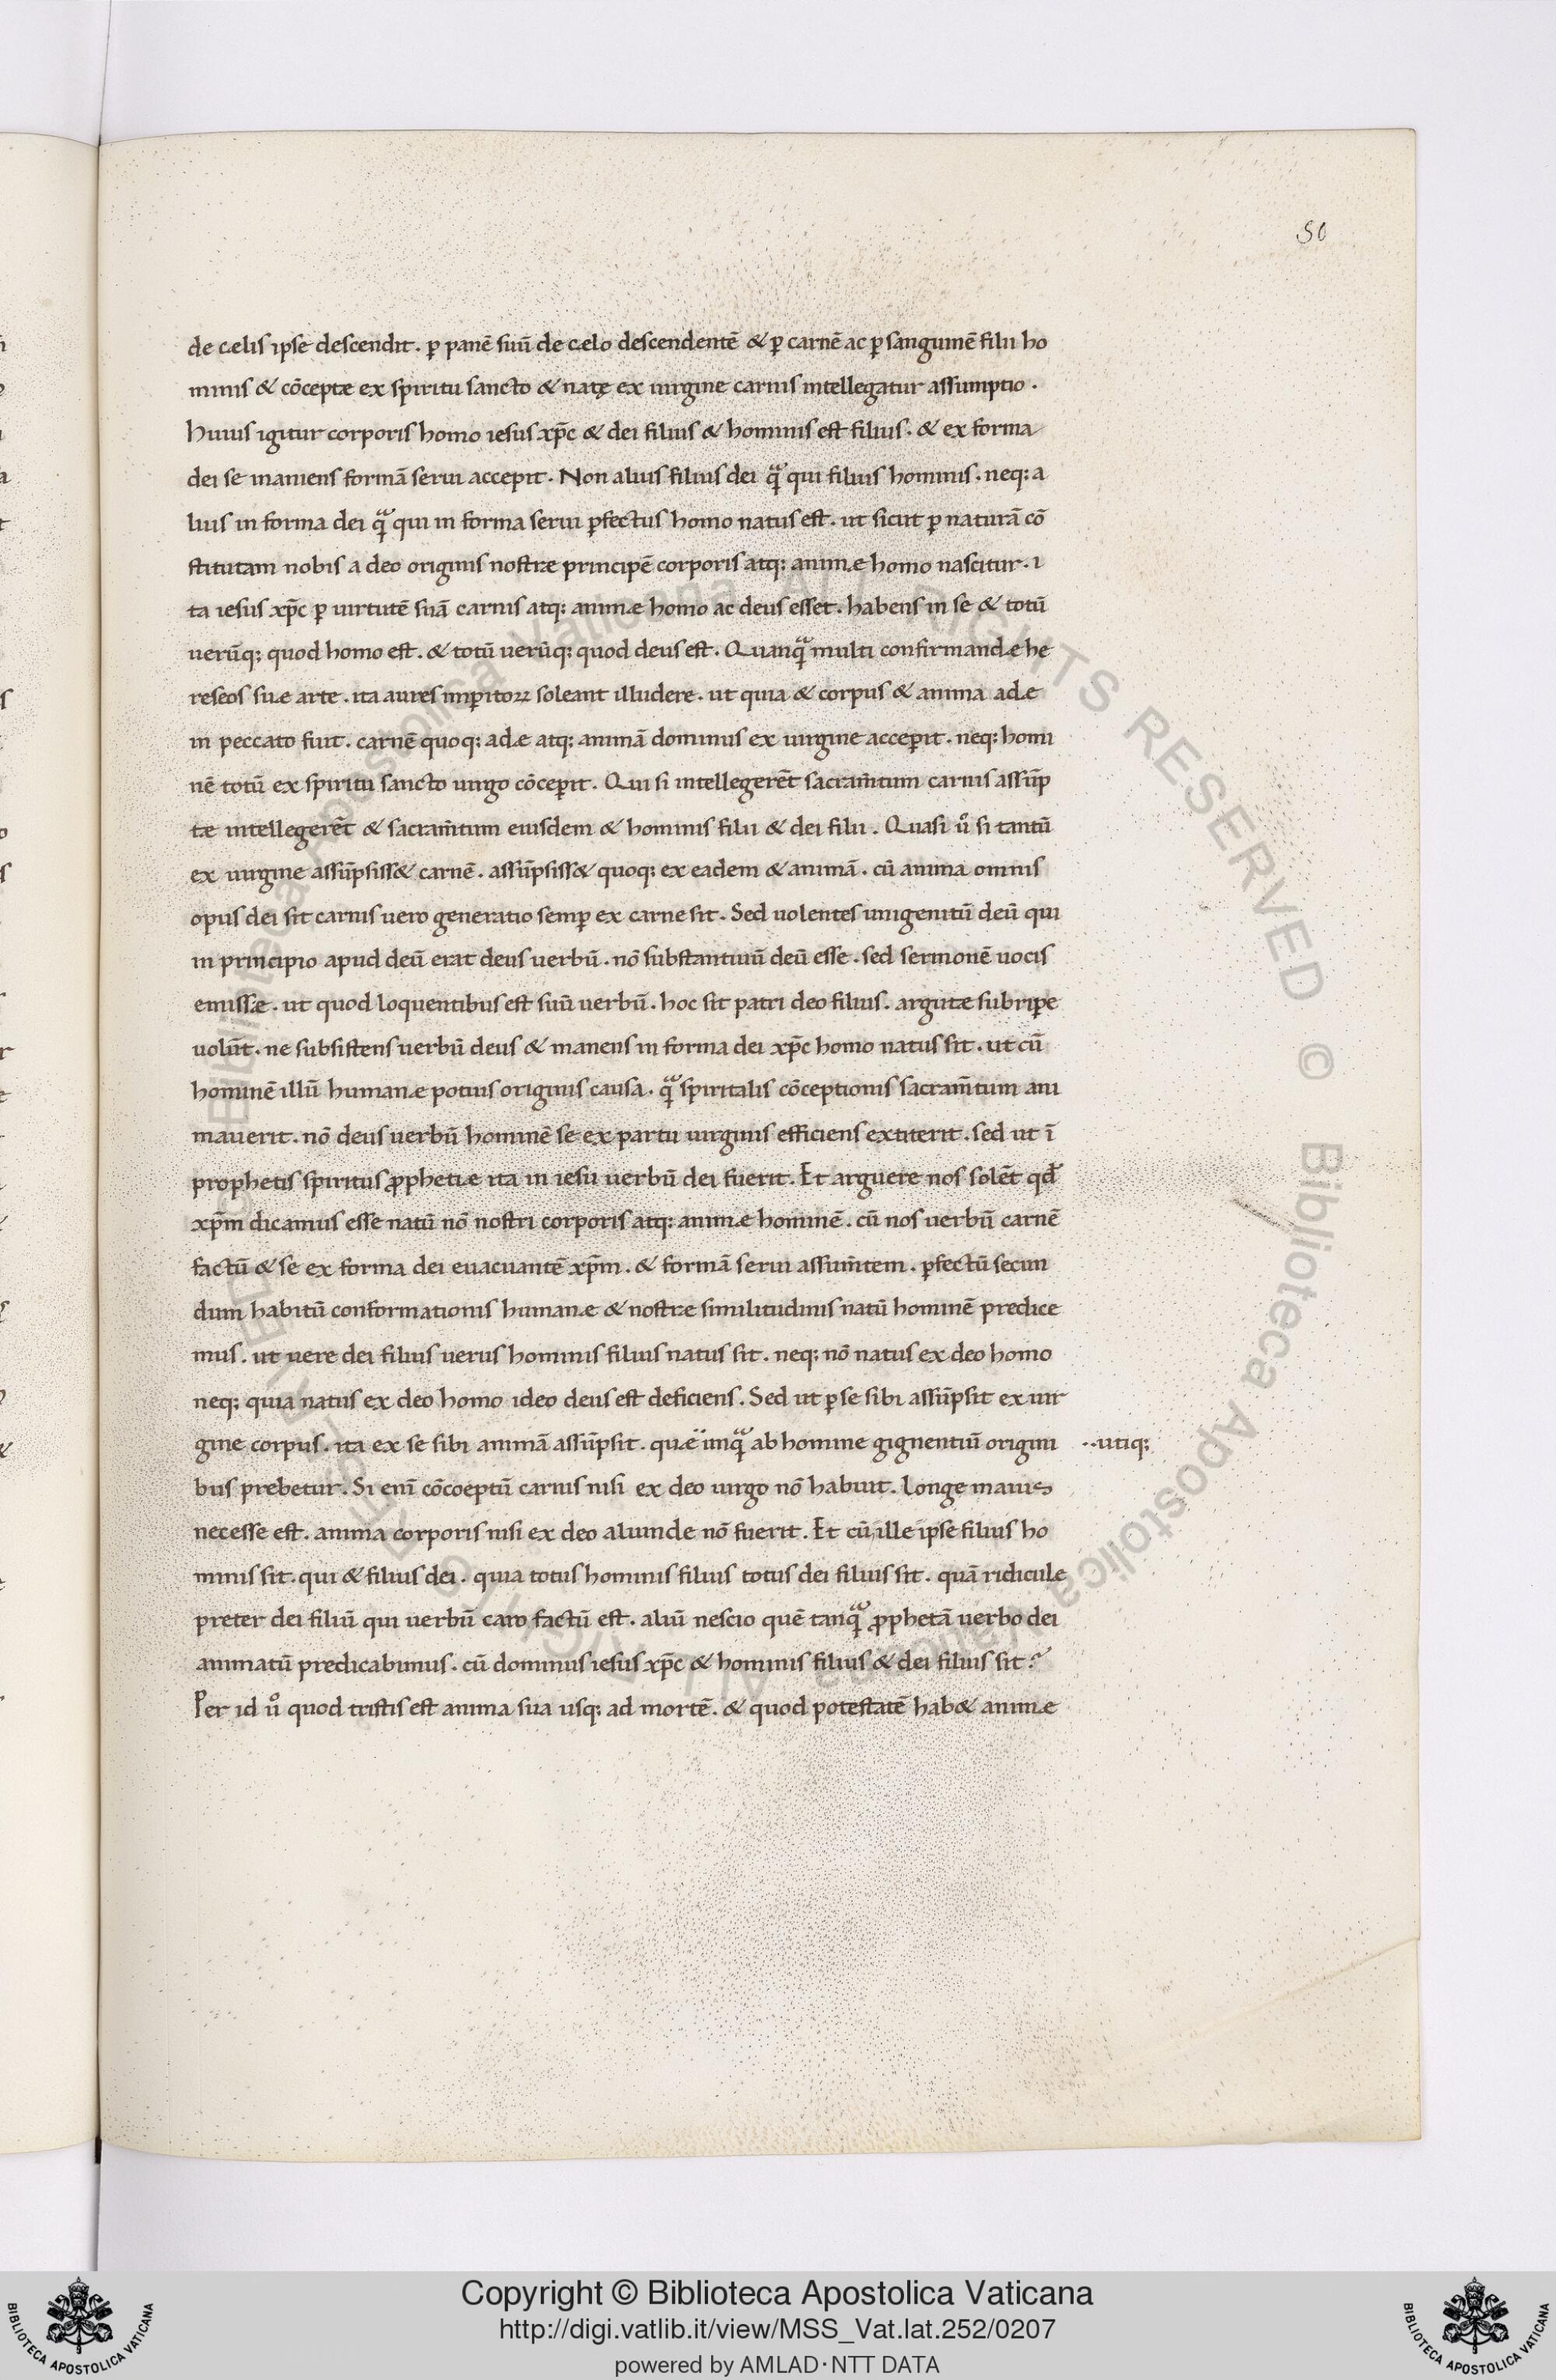 50
de cælis ipse descendit. ꝑ panē suū de cælo descendentē & ꝑ carnē ac ꝑ sanguinē filii ho
minis & cōceptæ ex spiritu sancto & natę ex uirgine carnis intellegatur assumptio.
Huius igitur corporis homo iesus xp̄c & dei filius & hominis est filius. & ex forma
dei se inaniens formā serui accepit. Non alius filius dei qᷓ qui filius hominis. neq; a
lius in forma dei qᷓ qui in forma serui ꝑfectus homo natus est. ut sicut ꝑ naturā cō
stitutam nobis a deo originis nostræ principē corporis atq; animæ homo nascitur. i
ta iesus xp̄c ꝑ uirtutē suā carnis atq; animæ homo ac deus esset. habens in se & totū
uerūq; quod homo est. & totū uerūq; quod deus est. Quanqᷓ multi confirmandæ he
reseos suæ arte. ita aures imꝑitoꝝ soleant illudere. ut quia & corpus & anima adæ
in peccato fuit. carnē quoq; adæ atq; animā dominus ex uirgine acceperit. neq; homi
nē totū ex spiritu sancto uirgo cōceperit. Qui si intellegerēt sacram̄tum carnis assūp
tæ intellegerēt & sacram̄tum eiusdem & hominis filii & dei filii. Quasi uͦ si tantū
ex uirgine assūpsiss& carnē. assūpsiss& quoq; ex eadem & animā. cū anima omnis
opus dei sit carnis uero generatio semꝑ ex carne sit. Sed uolentes unigenitū deū qui
in principio apud deū erat deus uerbū. nō substantiuū deū esse. sed sermonē uocis
emissæ. ut quod loquentibus est suū uerbū. hoc sit patri deo filius. argute subripe
uolūt. ne subsistens uerbū deus & manens in forma dei xp̄c homo natus sit. ut cū
hominē illū humanæ potius originis causa. qᷓ spiritalis cōceptionis sacram̄tum ani
mauerit. nō deus uerbū hominē se ex partu uirginis efficiens extiterit. sed ut ī
prophetis spiritus ꝓphetiæ ita in iesu uerbū dei fuerit. Et arguere nos solēt qđ
xp̄m dicamus esse natū nō nostri corporis atq; animæ hominē. cū nos uerbū carnē
factū & se ex forma dei euacuantē xp̄m. & formā serui assum̄tem. ꝑfectū secun
dum habitū conformationis humanæ & nostræ similitudinis natū hominē predice
mus. ut uere dei filius uerus hominis filius natus sit. neq; nō natus ex deo homo
neq; quia natus ex deo homo ideo deus est deficiens. Sed ut ꝑ se sibi assūpsit ex uir
gine corpus. ita ex se sibi animā assūpsit. quæ¨ unqᷓ ab homine gignentiū origini ..utiq;
bus prebetur. Si enī cōcoeptū carnis nisi ex deo uirgo nō habuit. Longe maius
necesse est. anima corporis nisi ex deo aliunde nō fuerit. Et cū ille ipse filius ho
minis sit. qui & filius dei. quia totus hominis filius totus dei filius sit. quā ridicule
preter dei filiū qui uerbū caro factū est. aliū nescio quē tanqᷓ ꝓphetā uerbo dei
animatū predicabimus. cū dominus iesus xp̄c & hominis filius & dei filius sit?
Per id uͦ quod tristis est anima sua usq; ad mortē. & quod potestatē hab& animæ
Copyright © Biblioteca Apostolica Vaticana
http://digi.vatlib.it/view/MSS_Vat.lat.252/0207
powered by AMLAD·NTT DATA